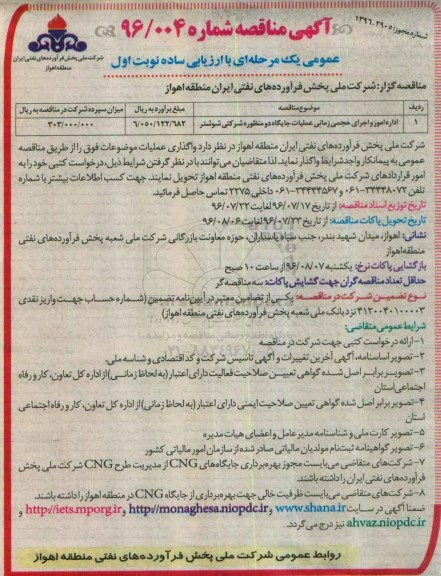 آگهی مناقصه شماره ۹۶/۰۰۴
شماره مجوز: ۱۳۹۶.۳۹۰۵
عمومی یک مرحله‌ای با ارزیابی ساده نوبت اول
شرکت ملی پخش فرآورده‌های نفتی ایران
منطقه اهواز
مناقصه گزار: شرکت ملی پخش فرآورده‌های نفتی ایران منطقه اهواز
ردیف موضوع مناقصه مبلغ برآورد به ریال میزان سپرده شرکت در مناقصه به ریال
۱ اداره امور و اجرای حجمی زمانی عملیات جایگاه دو منظوره شرکتی شوشتر ۶/۰۵۰/۱۲۲/۶۸۲ ۳۰۳/۰۰۰/۰۰۰
شرکت ملی پخش فرآورده‌های نفتی ایران منطقه اهواز در نظر دارد واگذاری عملیات موضوعات فوق را از طریق مناقصه
عمومی به پیمانکار واجد شرایط واگذار نماید. لذا متقاضیان می‌توانند با در نظر گرفتن شرایط ذیل، درخواست کتبی خود را به
امور قراردادهای شرکت ملی پخش فرآورده‌های نفتی منطقه اهواز تحویل نمایند. جهت کسب اطلاعات بیشتر با شماره
تلفن ۳۴۴۴۸۰۷۲-۰۶۱ و ۳۴۴۴۴۵۶۷-۰۶۱ داخلی ۲۲۷۵ تماس حاصل فرمائید.
تاریخ توزیع اسناد مناقصه: از تاریخ ۹۶/۰۷/۱۷ لغایت ۹۶/۰۷/۲۲
تاریخ تحویل پاکات مناقصه: از تاریخ ۹۶/۰۷/۲۳ لغایت ۹۶/۰۸/۰۶
نشانی: اهواز، میدان شهید بندر، جنب ستاد پاسداران، حوزه معاونت بازرگانی شرکت ملی شعبه پخش فرآورده‌های نفتی
منطقه اهواز
بازگشایی پاکات نرخ: یکشنبه ۹۶/۰۸/۰۷ از ساعت ۱۰ صبح
حداقل تعداد مناقصه گران جهت گشایش پاکات: سه مناقصه گر
نوع تضمین شرکت در مناقصه: یکی از تضامین معتبر در آیین‌نامه تضمین (شماره حساب جهت واریز نقدی
۴۱۲۰۰۴۰۱۰۰۰۰۳ نزد بانک ملی شعبه پخش فرآورده‌های نفتی منطقه اهواز)
شرایط عمومی متقاضی:
۱-ارائه درخواست کتبی جهت شرکت در مناقصه
۲-تصویر اساسنامه، آگهی آخرین تغییرات و آگهی تأسیس شرکت و کد اقتصادی و شناسه ملی.
۳-تصویر برابر اصل شده گواهی تعیین صلاحیت فعالیت دارای اعتبار (به لحاظ زمانی) از اداره کل تعاون، کار و رفاه
اجتماعی استان
۴-تصویر برابر اصل شده گواهی تعیین صلاحیت ایمنی دارای اعتبار (به لحاظ زمانی) از اداره کل تعاون، کار و رفاه اجتماعی
استان
۵-تصویر کارت ملی و شناسنامه مدیرعامل و اعضای هیات مدیره
۶-تصویر گواهینامه ثبت‌نام مولدیان مالیاتی صادر شده از سازمان امور مالیاتی کشور
۷-شرکت‌های متقاضی می‌بایست مجوز بهره‌برداری جایگاه‌های CNG از مدیریت طرح CNG شرکت ملی پخش
فرآورده‌های نفتی ایران را داشته باشند.
۸-شرکت‌های متقاضی می‌بایست ظرفیت خالی جهت بهره‌برداری از جایگاه CNG در منطقه اهواز را داشته باشند.
ضمناً آگهی در سایت www.shana.ir و http://monaghesa.niopdc.ir و http://iets.mporg.ir و
ahvaz.niopdc.ir نیز درج می‌گردد.
روابط عمومی شرکت ملی پخش فرآورده‌های نفتی منطقه اهواز